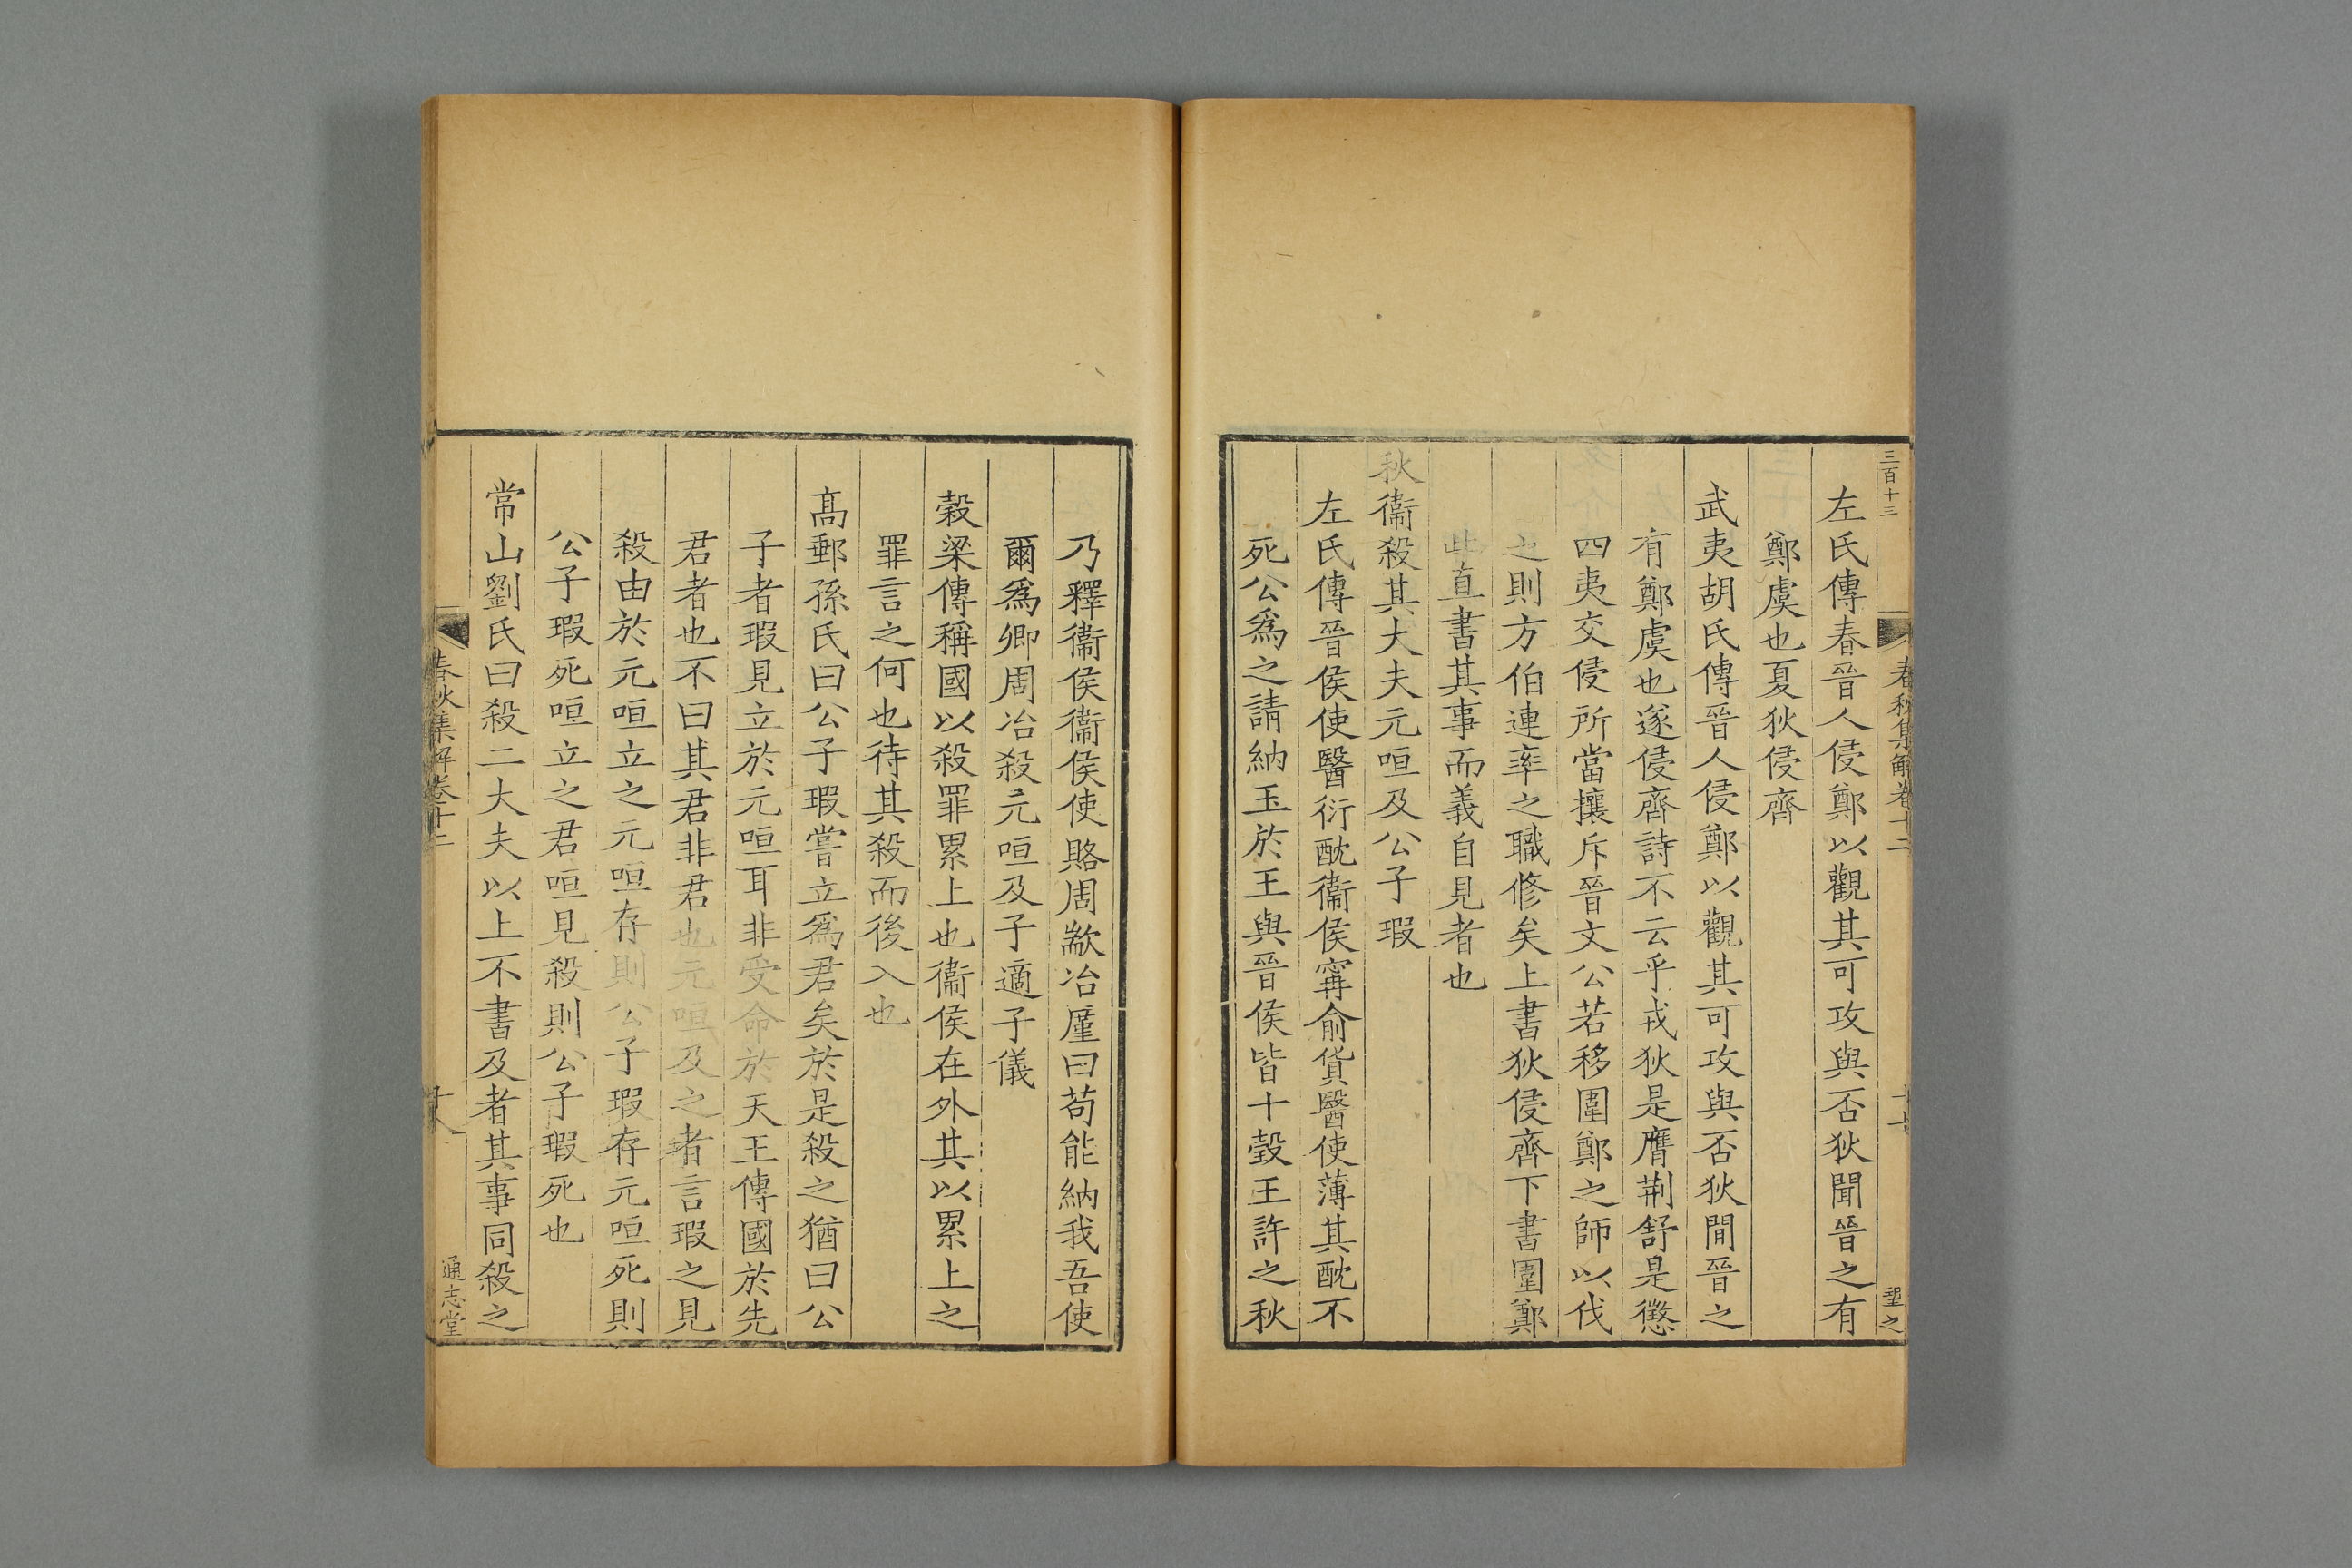 三百十三
春秋集解卷十二
十七
左氏傳春晉人侵鄭以觀其可攻與否狄聞晉之有
鄭虞也夏狄侵齊
武夷胡氏傳晉人侵鄭以觀其可攻與否狄閒晉之
有鄭虞也遂侵齊詩不云乎戎狄是膺荆舒是懲
四夷交侵所當攘斥晉文公若移圍鄭之師以伐
之則方伯連率之職修矣上書狄侵齊下書圍鄭
此直書其事而義自見者也
秋衞殺其大夫元咺及公子瑕
左氏傳晉侯使醫衍酖衞侯甯俞貨醫使薄其酖不
死公爲之請納玉於王與晉侯皆十瑴王許之秋
乃釋衞侯衞侯使賂周歂冶廑曰苟能納我吾使
爾爲卿周冶殺元咺及子適子儀
穀梁傳稱國以殺罪累上也衞侯在外其以累上之
罪言之何也待其殺而後入也
髙郵孫氏曰公子瑕嘗立爲君矣於是殺之猶曰公
子者瑕見立於元咺耳非受命於天王傳國於先
君者也不曰其君非君也元咺及之者言瑕之見
殺由於元咺立之元咺存則公子瑕存元咺死則
公子瑕死咺立之君咺見殺則公子瑕死也
常山劉氏曰殺二大夫以上不書及者其事同殺之
春秋集解卷十二
十八
通志堂